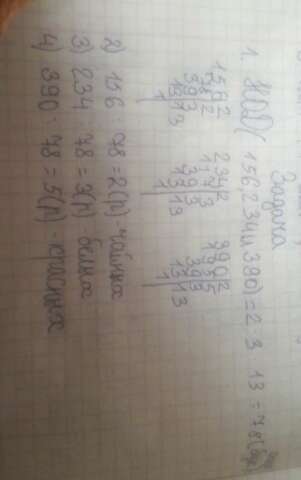 Задача
1. НОД(156 234 и 390) = 2 · 3 · 13 = 78
156 2 234 2 390 2
78 2 117 3 195 5
39 3 39 3 39 3
13 13 13 13 13 13
1 1 1
2) 156 : 78 = 2(р) - чайных
3) 234 78 = 3(р) - белых
4) 390 : 78 = 5(р) - красных